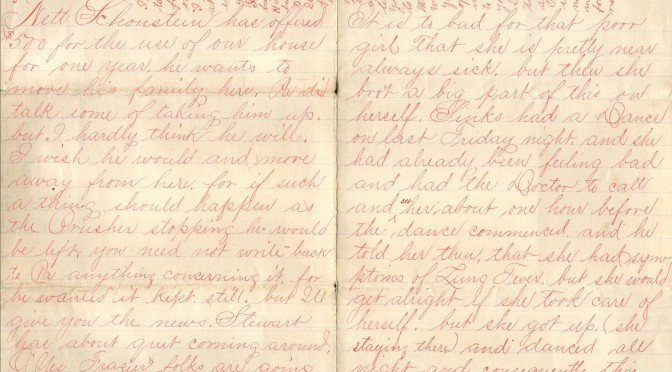 Nett Schonstein has offered
500 for the use of our house
for one year, he wants to
move his family here, Pa did
talk some of taking him up.
but I hardly think he will.
I wish he would and move
away from here. for if such
a thing should happen as
the Crusher stopping he would
be left, you need not write back
to Pa anything concerning it, for
he wanted it kept still. but I'll
give you the news. Stewart
has about quit coming around,
Frazier folks are going
It is to bad for that poor
girl that she is pretty near
always sick. but then she
brot a big part of this on
herself. Sinks had a Dance
on last Friday night, and she
had already been feeling bad
and had the Doctor to call
and see her, about one hour before
the dance commenced. and he
told her then, that she had sym-
ptoms of Lung Fever. but she would
get alright if she took care of
herself. but she got up. (she
staying there) and danced all
night and consequently this